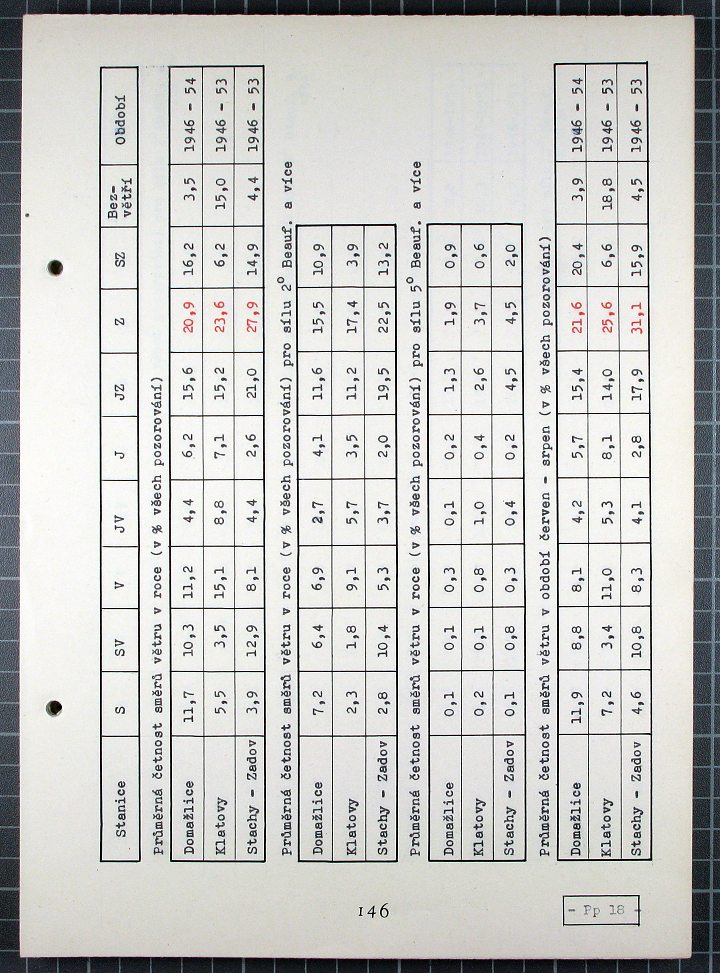 Stanice S SV V JV J JZ Z SZ Bez- větří Období
Průměrná četnost směrů větru v roce (v % všech pozorování)
Domažlice 11,7 10,3 11,2 4,4 6,2 15,6 20,9 16,2 3,5 1946 - 54
Klatovy 5,5 3,5 15,1 8,8 7,1 15,2 23,6 6,2 15,0 1946 - 53
Stachy - Zadov 3,9 12,9 8,1 4,4 2,6 21,0 27,9 14,9 4,4 1946 - 53
Průměrná četnost směrů větru v roce (v % všech pozorování) pro sílu 2° Beauf. a více
Domažlice 7,2 6,4 6,9 2,7 4,1 11,6 15,5 10,9
Klatovy 2,3 1,8 9,1 5,7 3,5 11,2 17,4 3,9
Stachy - Zadov 2,8 10,4 5,3 3,7 2,0 19,5 22,5 13,2
Průměrná četnost směrů větru v roce (v % všech pozorování) pro sílu 5° Beauf. a více
Domažlice 0,1 0,1 0,3 0,1 0,2 1,3 1,9 0,9
Klatovy 0,2 0,1 0,8 1,0 0,4 2,6 3,7 0,6
Stachy - Zadov 0,1 0,8 0,3 0,4 0,2 4,5 4,5 2,0
Průměrná četnost směrů větru v období červen - srpen (v % všech pozorování)
Domažlice 11,9 8,8 8,1 4,2 5,7 15,4 21,6 20,4 3,9 1946 - 54
Klatovy 7,2 3,4 11,0 5,3 8,1 14,0 25,6 6,6 18,8 1946 - 53
Stachy - Zadov 4,6 10,8 8,3 4,1 2,8 17,9 31,1 15,9 4,5 1946 - 53
146
- Pp 18 -